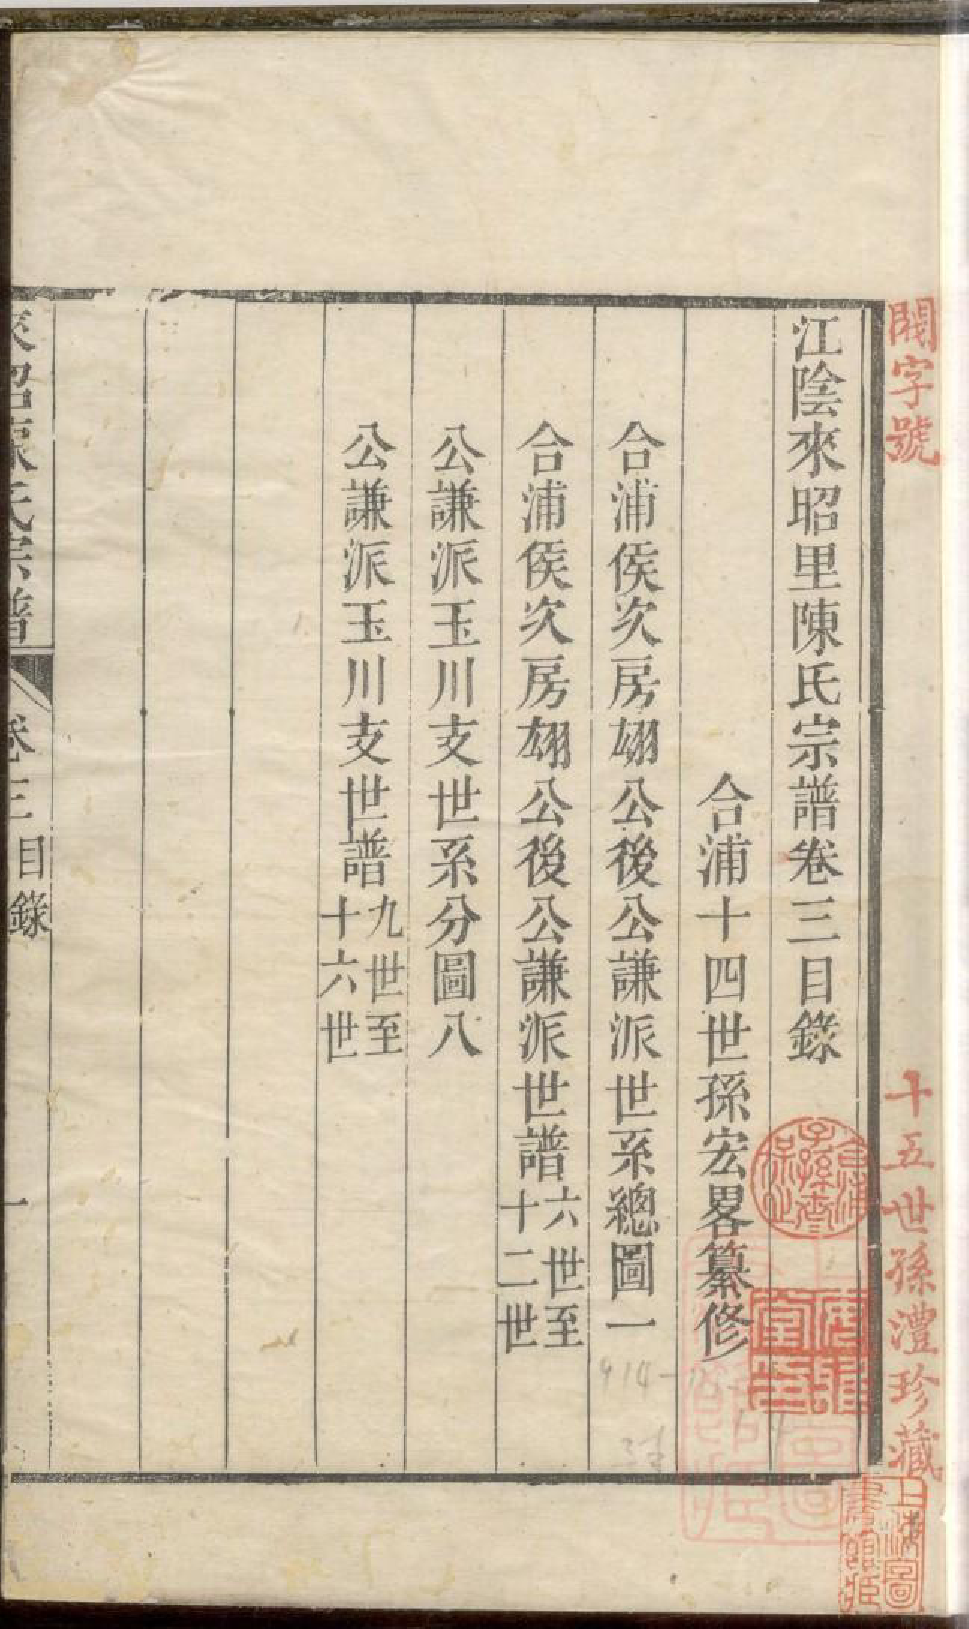 閱字號
十五世孫澧珍藏
江陰來昭里陳氏宗譜卷三目錄
合浦十四世孫宏畧纂修
合浦侯次房翊公後公謙派世系總圖一
合浦侯次房翊公後公謙派世譜六世至十二世
公謙派玉川支世系分圖八
公謙派玉川支世譜九世至十六世
來昭陳氏宗譜
卷三目錄
一